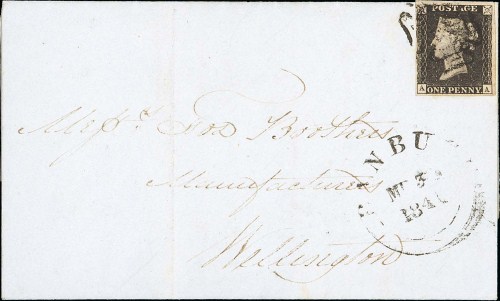 POSTAGE
A A
ONE PENNY
Messrs. Fox Brothers
Manufacturers
Wellington
1840